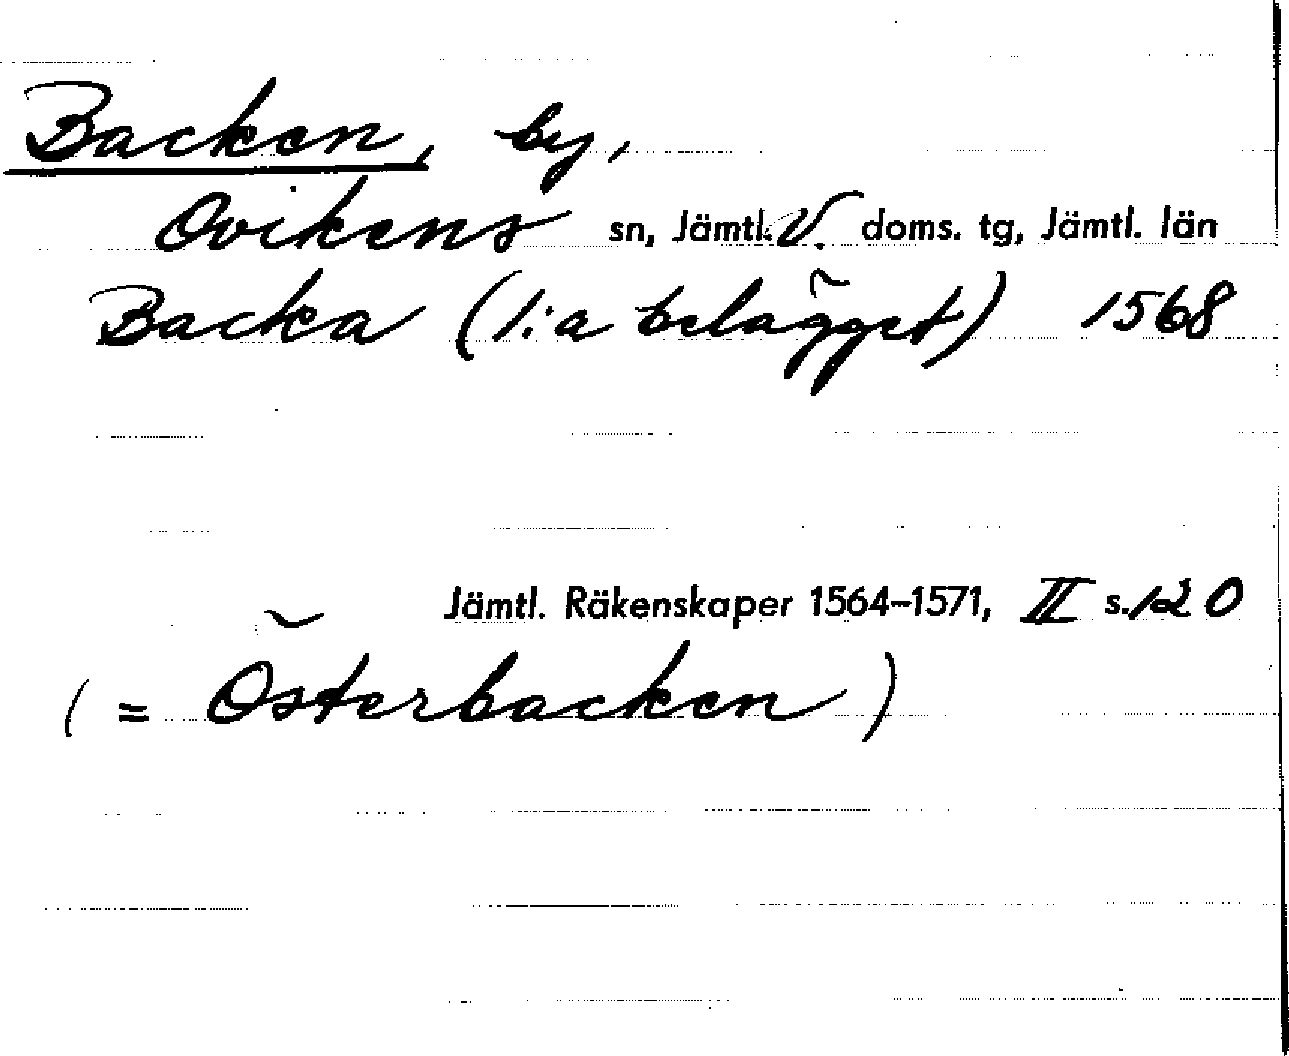 Backen, by,
Ovikens sn, Jämtl. V. doms. tg, Jämtl. län
Backa (1:a belägget) 1568
Jämtl. Räkenskaper 1564–1571, II s. 120
(= Österbacken)